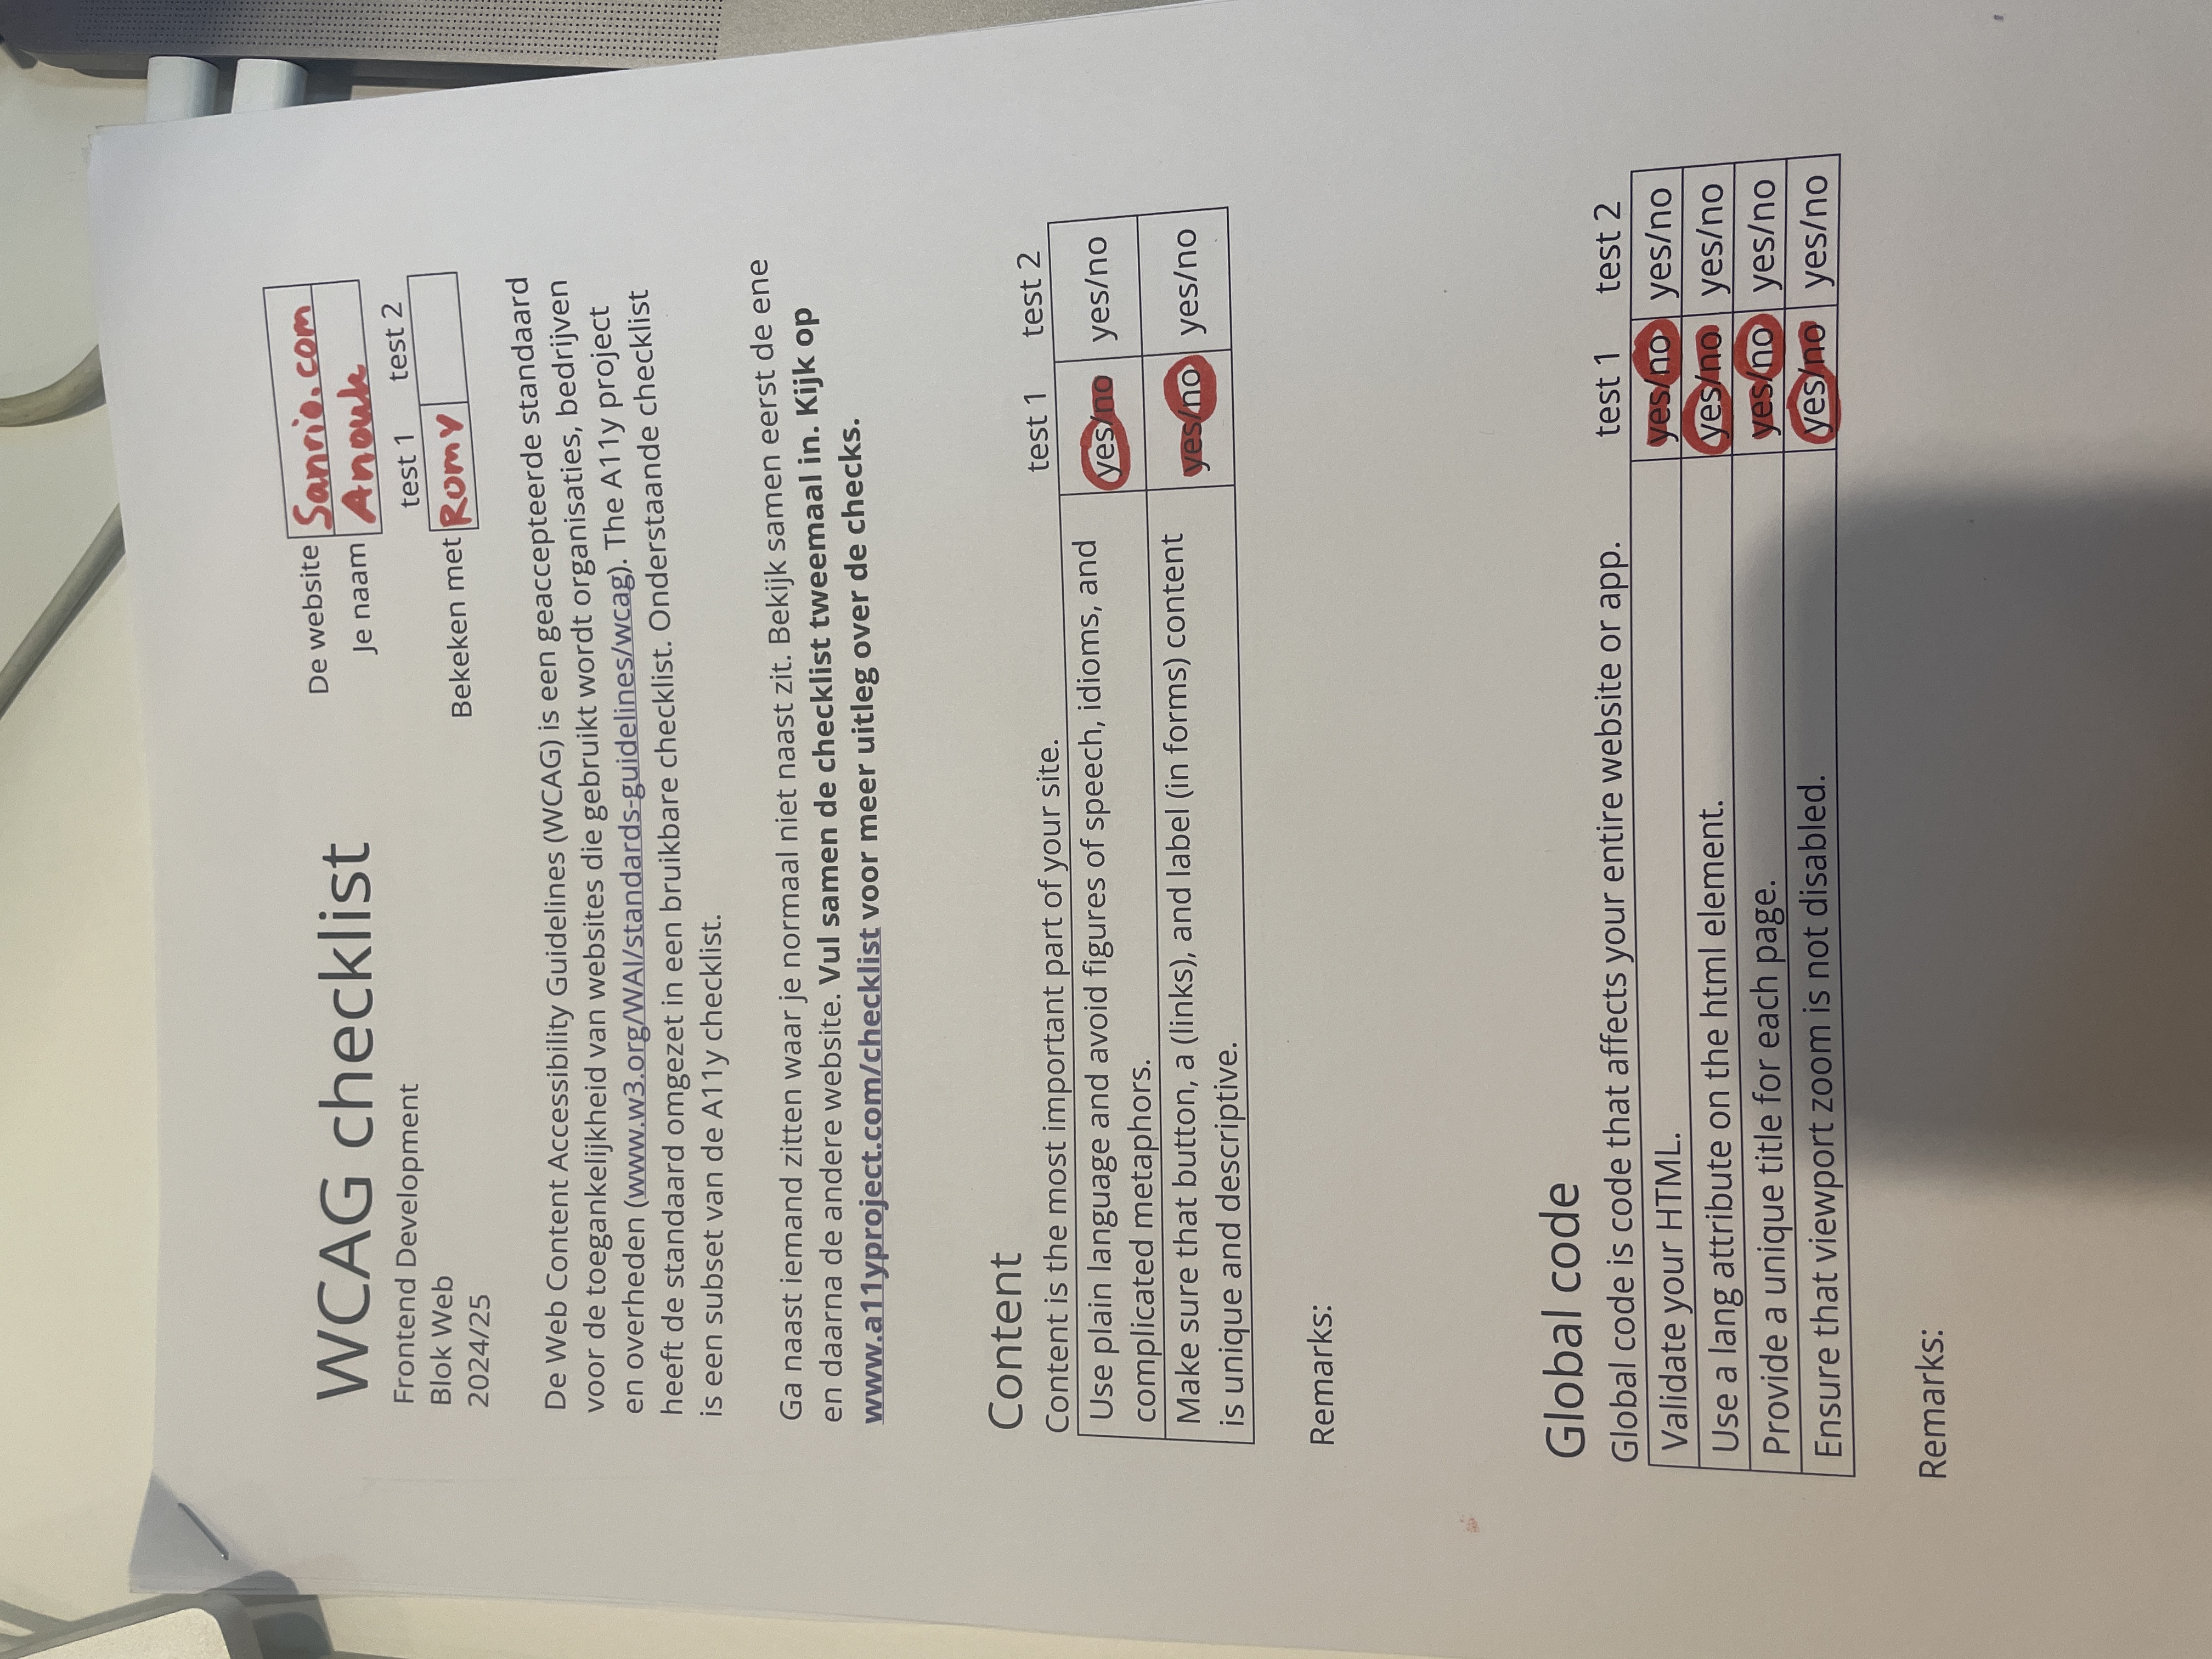 WCAG checklist
Frontend Development
Blok Web
2024/25
De website Sanrio.com
Je naam Anouk
test 1 test 2
Bekeken met Romy
De Web Content Accessibility Guidelines (WCAG) is een geaccepteerde standaard
voor de toegankelijkheid van websites die gebruikt wordt organisaties, bedrijven
en overheden (www.w3.org/WAI/standards-guidelines/wcag). The A11y project
heeft de standaard omgezet in een bruikbare checklist. Onderstaande checklist
is een subset van de A11y checklist.
Ga naast iemand zitten waar je normaal niet naast zit. Bekijk samen eerst de ene
en daarna de andere website. Vul samen de checklist tweemaal in. Kijk op
www.a11yproject.com/checklist voor meer uitleg over de checks.
Content
Content is the most important part of your site. test 1 test 2
Use plain language and avoid figures of speech, idioms, and
complicated metaphors. yes/no yes/no
Make sure that button, a (links), and label (in forms) content
is unique and descriptive. yes/no yes/no
Remarks:
Global code
Global code is code that affects your entire website or app. test 1 test 2
Validate your HTML. yes/no yes/no
Use a lang attribute on the html element. yes/no yes/no
Provide a unique title for each page. yes/no yes/no
Ensure that viewport zoom is not disabled. yes/no yes/no
Remarks: